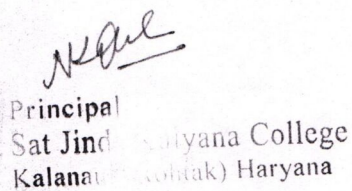 Principal
Sat Jind Kalyana College
Kalanau (Rohtak) Haryana